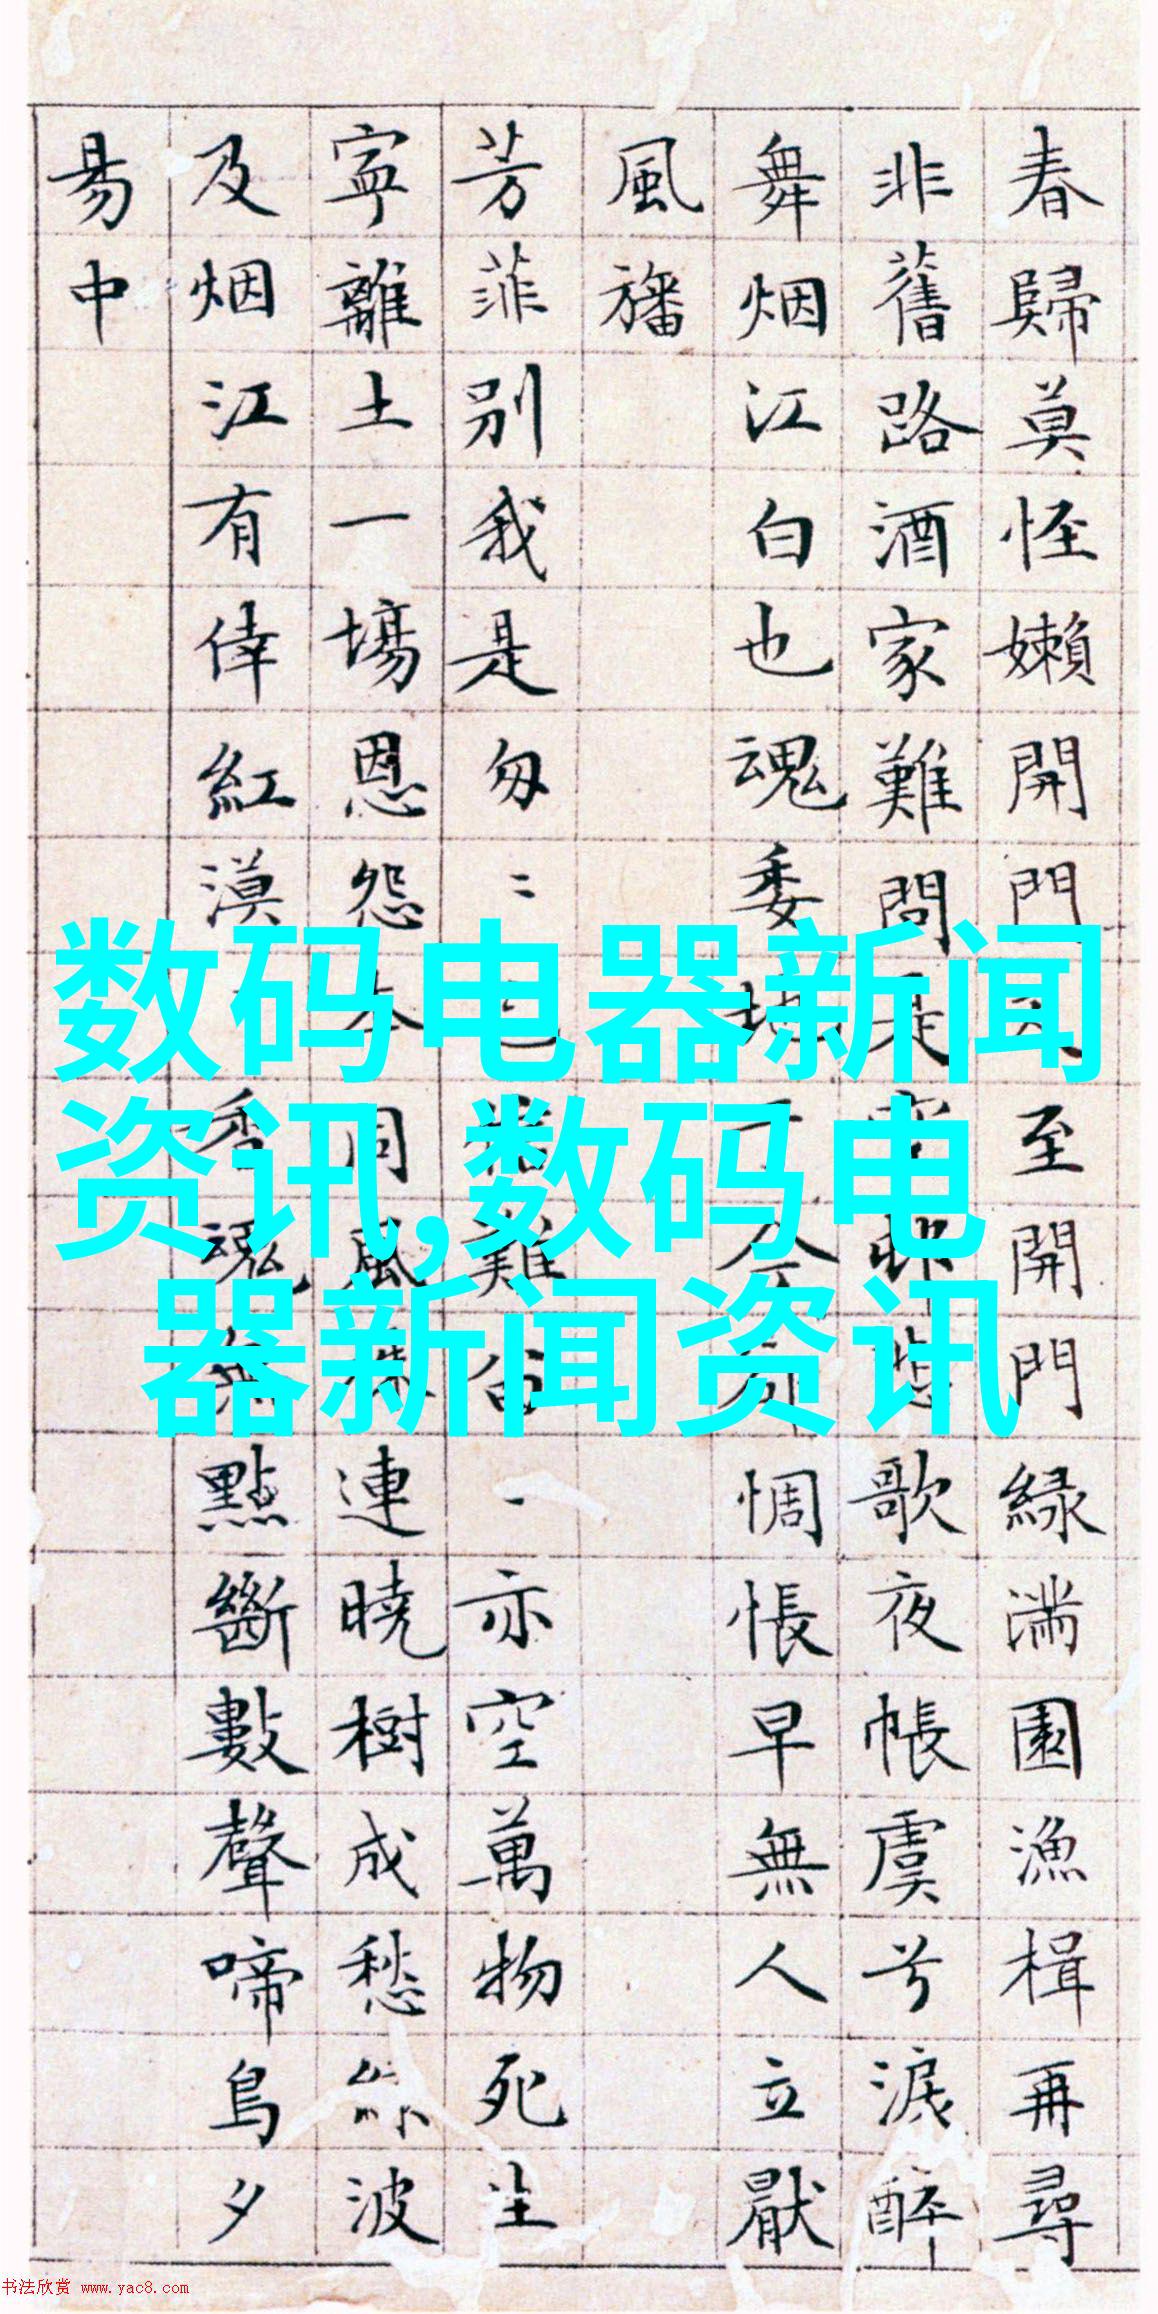 春歸莫怪嬾開門 至開門緑满園漁楫再尋
非舊路酒家難問是 悲歌夜帳虞兮淚醉
舞烟江白也魂委 今 惆悵早無人立厭
風旛
芳菲别我是匆〻 難 一亦空萬物死生
寧離土一場恩怨本同風 連曉樹成愁 波
及烟江有倖紅漠 香魂 點斷數聲啼鳥夕
易中
数码电器新闻
资讯,数码电
器新闻资讯
书法欣赏 www.yac8.com